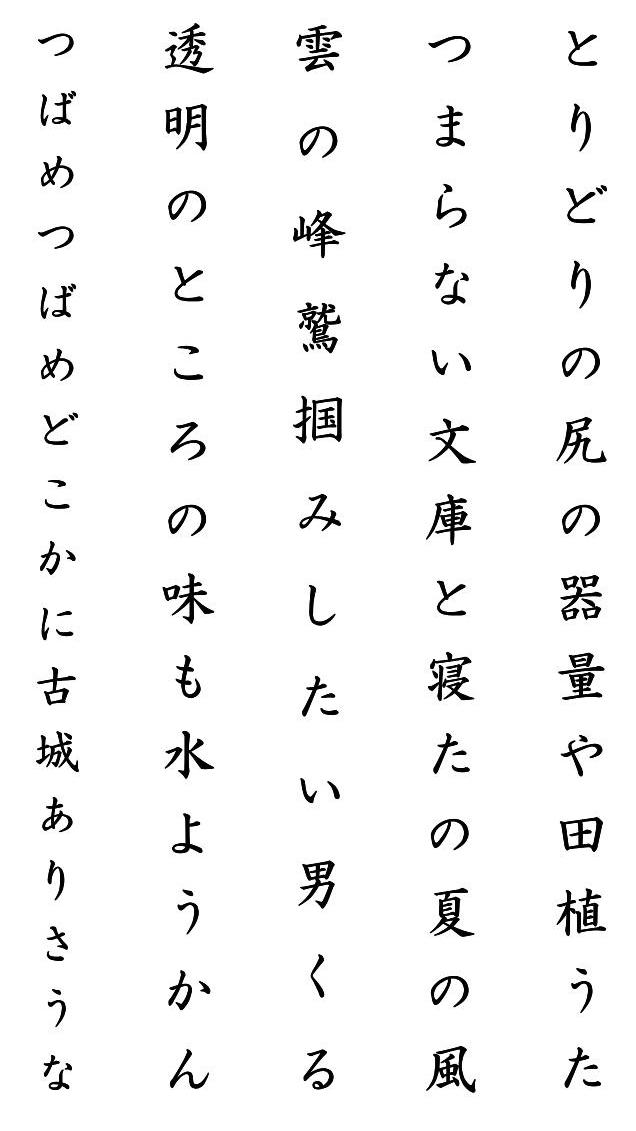 とりどりの尻の器量や田植うた
つまらない文庫と寝たの夏の風
雲の峰鷲掴みしたい男くる
透明のところの味も水ようかん
つばめつばめどこかに古城ありさうな